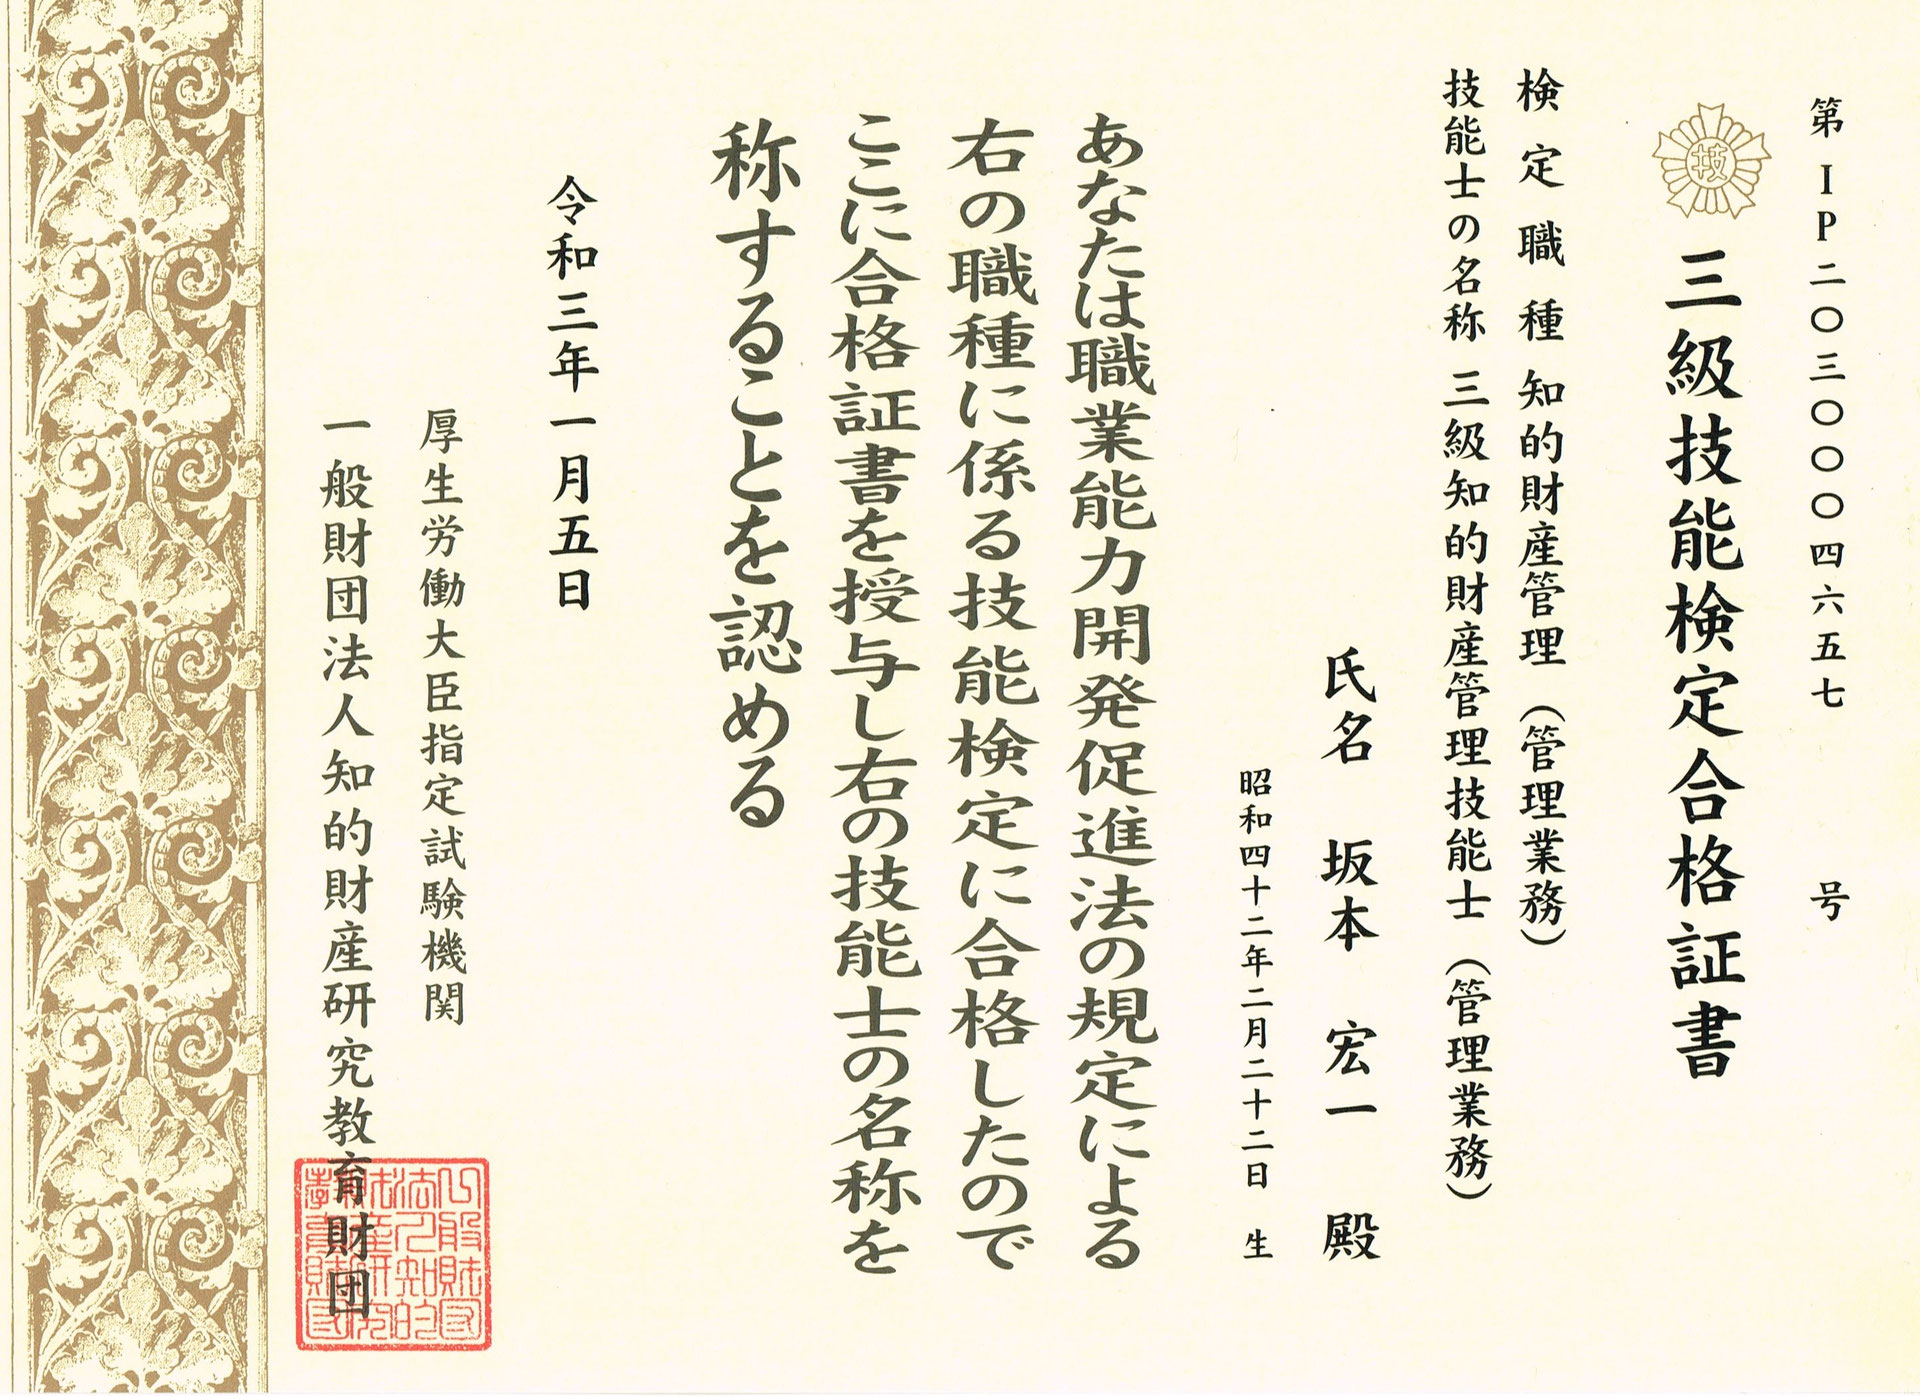 第IP二〇三〇〇〇四六五七号
技
三級技能検定合格証書
検定職種 知的財産管理(管理業務)
技能士の名称 三級知的財産管理技能士(管理業務)
氏名 坂本 宏一 殿
昭和四十二年二月二十二日 生
あなたは職業能力開発促進法の規定による
右の職種に係る技能検定に合格したので
ここに合格証書を授与し右の技能士の名称を
称することを認める
令和三年一月五日
厚生労働大臣指定試験機関
一般財団法人知的財産研究教育財団
一般財団
法人知的
財産研究
教育財団